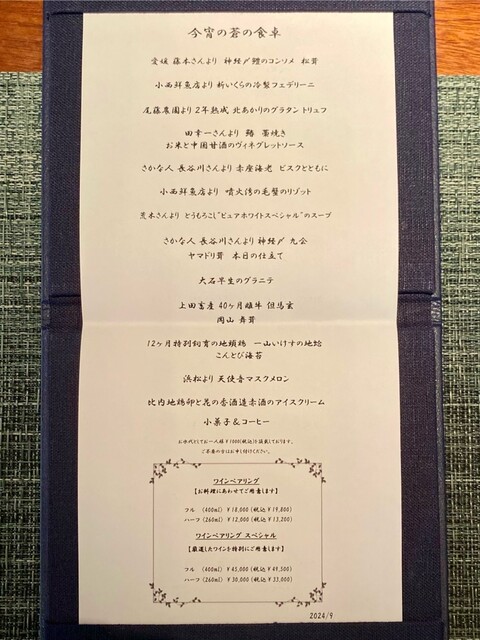 今宵の蒼の食卓
愛媛 藤本さんより 神経〆鱧のコンソメ 松茸
小西鮮魚店より 新いくらの冷製フェデリーニ
尾藤農園より 2年熟成 北あかりのグラタン トリュフ
田幸一さんより 鰆 藁焼き
お米と中国甘酒のヴィネグレットソース
さかな人 長谷川さんより 赤座海老 ビスクとともに
小西鮮魚店より 噴火湾の毛蟹のリゾット
茨木さんより とうもろこし"ピュアホワイトスペシャル"のスープ
さかな人 長谷川さんより 神経〆 九会
ヤマドリ茸 本日の仕立て
大石早生のグラニテ
上田畜産 40ヶ月雌牛 但馬玄
岡山 舞茸
12ヶ月特別飼育の地頭鶏 一山いけすの地蛤
こんとび海苔
浜松より 天使音マスクメロン
比内地鶏卵と花の香酒造赤酒のアイスクリーム
小菓子&コーヒー
お水代としてお一人様¥1000(税込)を頂戴しております。
ご不要の方はお申し付けください。
ワインペアリング
【お料理にあわせてご用意します】
フル (400ml) ¥18,000 (税込¥19,800)
ハーフ (260ml) ¥12,000 (税込¥13,200)
ワインペアリング スペシャル
【厳選したワインを特別にご用意します】
フル (400ml) ¥45,000 (税込¥49,500)
ハーフ (260ml) ¥30,000 (税込¥33,000)
2024/9